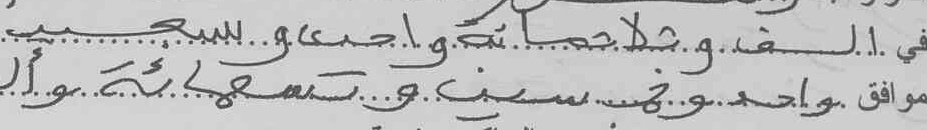 في الف و ثلاثمائة واحدى و سبعين
موافق واحد وخمسين و تسعمائة وأل